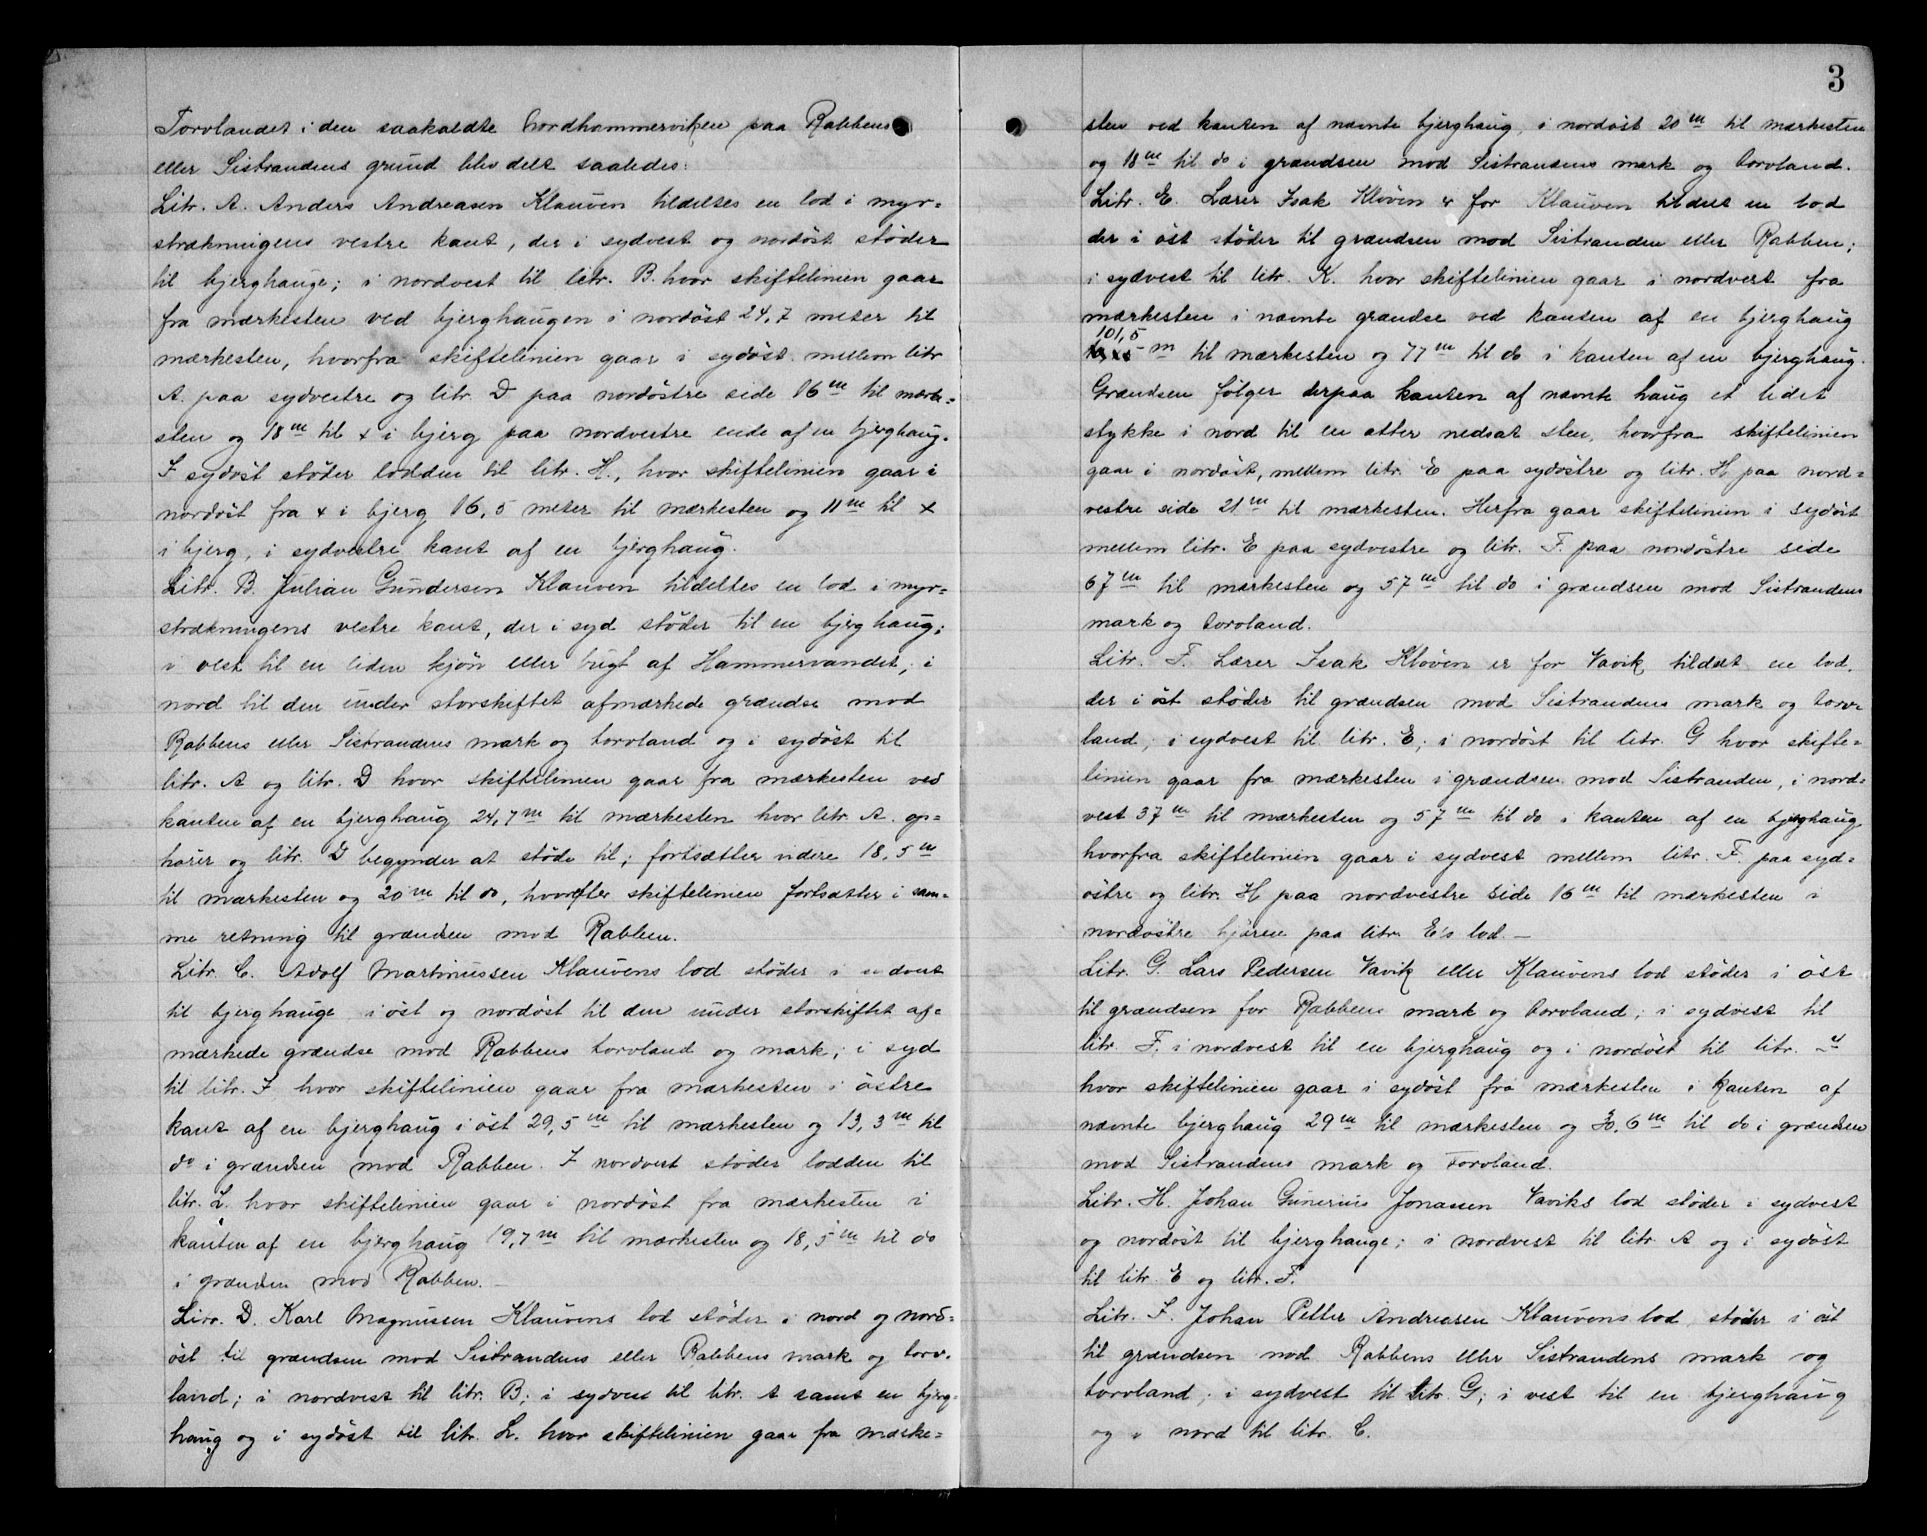 Torvlandet i den saakaldte Nordhammerviken paa Rabbens
eller Sistrandens grund blev delt saaledes:
Litr. A. Anders Andreasen Klauven tildeltes en lod i myr-
strækningens vestre kant, der i sydvest og nordöst støder
til bjerghauge; i nordvest til litr. B. hvor skiftelinien gaar
fra mærkesten ved bjerghaugen i nordöst 24,7 meter til
mærkesten, hvorfra skiftelinien gaar i sydöst mellem litr
A. paa sydvestre og litr. D paa nordöstre side 16 m til mærke-
sten og 18 m til x i bjerg paa nordvestre ende af en bjerghaug.
I sydöst støder lodden til litr. H., hvor skiftelinien gaar i
nordöst fra x i bjerg 16,5 meter til mærkesten og 11 m til x
i bjerg, i sydvestre kant af en bjerghaug.
Litr. B. Julian Gundersen Klauven tildeltes en lod i myr-
strækningens vestre kant, der i syd støder til en bjerghaug;
i vest til en liden kjön eller bugt af Hammervandet; i
nord til den under storskiftet afmærkede grændse mod
Rabbens eller Sistrandens mark og torvland og i sydöst til
litr. A og litr. D hvor skiftelinien gaar fra mærkesten ved
kanten af en bjerghaug 24,7 m til mærkesten hvor litr. A. op-
hører og litr. D begynder at støde til; fortsætter videre 18,5 m
til mærkesten og 20 m til do, hvorefter skiftelinien fortsætter i sam-
me retning til grændsen mod Rabben.
Litr. C. Adolf Martinussen Klauvens lod støder i sydvest
til bjerghauge i öst og nordöst til den under storskiftet af-
mærkede grændse mod Rabbens torvland og mark; i syd
til litr. I hvor skiftelinien gaar fra mærkesten i östre
kant af en bjerghaug i öst 29,5 m til mærkesten og 13,3 m til
do i grændsen mod Rabben. I nordvest støder lodden til
litr. L. hvor skiftelinien gaar i nordöst fra mærkesten i
kanten af en bjerghaug 19,7 m til mærkesten og 18,5 m til do
i grændsen mod Rabben.
Litr. D. Karl Magnussen Klauvens lod støder i nord og nord-
öst til grændsen mod Sistrandens eller Rabbens mark og torv-
land; i nordvest til litr. B; i sydvest til litr. A samt en bjerg-
haug og i sydöst til litr. L. hvor skiftelinien gaar fra mærke-
3
sten ved kanten af nævnte bjerghaug, i nordöst 20 m til mærkesten
og 18 m til do i grændsen mod Sistrandens mark og torvland.
Litr. E. Lærer Isak Kløven er for Klauven tildelt en lod
der i öst støder til grændsen mod Sistranden eller Rabben;
i sydvest til litr. K. hvor skiftelinien gaar i nordvest fra
mærkesten i nævnte grændse ved kanten af en bjerghaug
101,5 m til mærkesten og 77 m til do i kanten af en bjerghaug.
Grændsen følger derpaa kanten af nævnte haug et lidet
stykke i nord til en atter nedsat sten, hvorfra skiftelinien
gaar i nordöst, mellem litr. E paa sydöstre og litr. H paa nord-
vestre side 21 m til mærkesten. Herfra gaar skiftelinien i sydöst
mellem litr. E paa sydvestre og litr. F. paa nordöstre side
67 m til mærkesten og 57 m til do i grændsen mod Sistrandens
mark og torvland.
Litr. F. Lærer Isak Kløven er for Vavik tildelt en lod,
der i öst støder til grændsen mod Sistrandens mark og torv-
land; i sydvest til litr. E; i nordöst til litr. G hvor skifte-
linien gaar fra mærkesten i grændsen mod Sistranden, i nord-
vest 37 m til mærkesten og 57 m til do i kanten af en bjerghaug
hvorfra skiftelinien gaar i sydvest mellem litr. F. paa syd-
östre og litr. H paa nordvestre side 16 m til mærkesten i
nordöstre hjörne paa litr. E's lod. —
Litr. G. Lars Pedersen Vavik eller Klauvens lod støder i öst
til grændsen for Rabbens mark og torvland; i sydvest til
litr. F. i nordvest til en bjerghaug og i nordöst til litr.
hvor skiftelinien gaar i sydöst fra mærkesten i kanten af
nævnte bjerghaug 29 m til mærkesten og 6 m til do i grændsen
mod Sistrandens mark og Torvland.
Litr. H. Johan Gunerius Jonassen Vaviks lod støder i sydvest
og nordöst til bjerghauge; i nordvest til litr. A og i sydöst
til litr. E og litr. F.
Litr. I. Johan Petter Andreasen Klauvens lod støder i öst
til grændsen mod Rabbens eller Sistrandens mark og
torvland; i sydvest til litr. G; i vest til en bjerghaug
og i nord til litr. C.